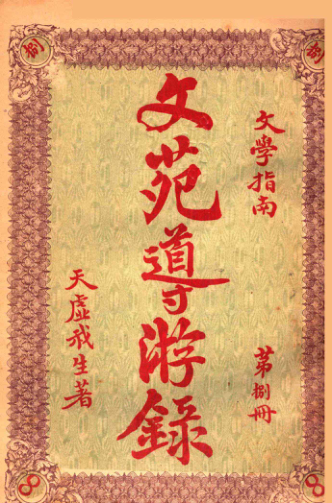 捌
捌
文學指南
第捌冊
文苑導游錄
天虛我生著
8
8